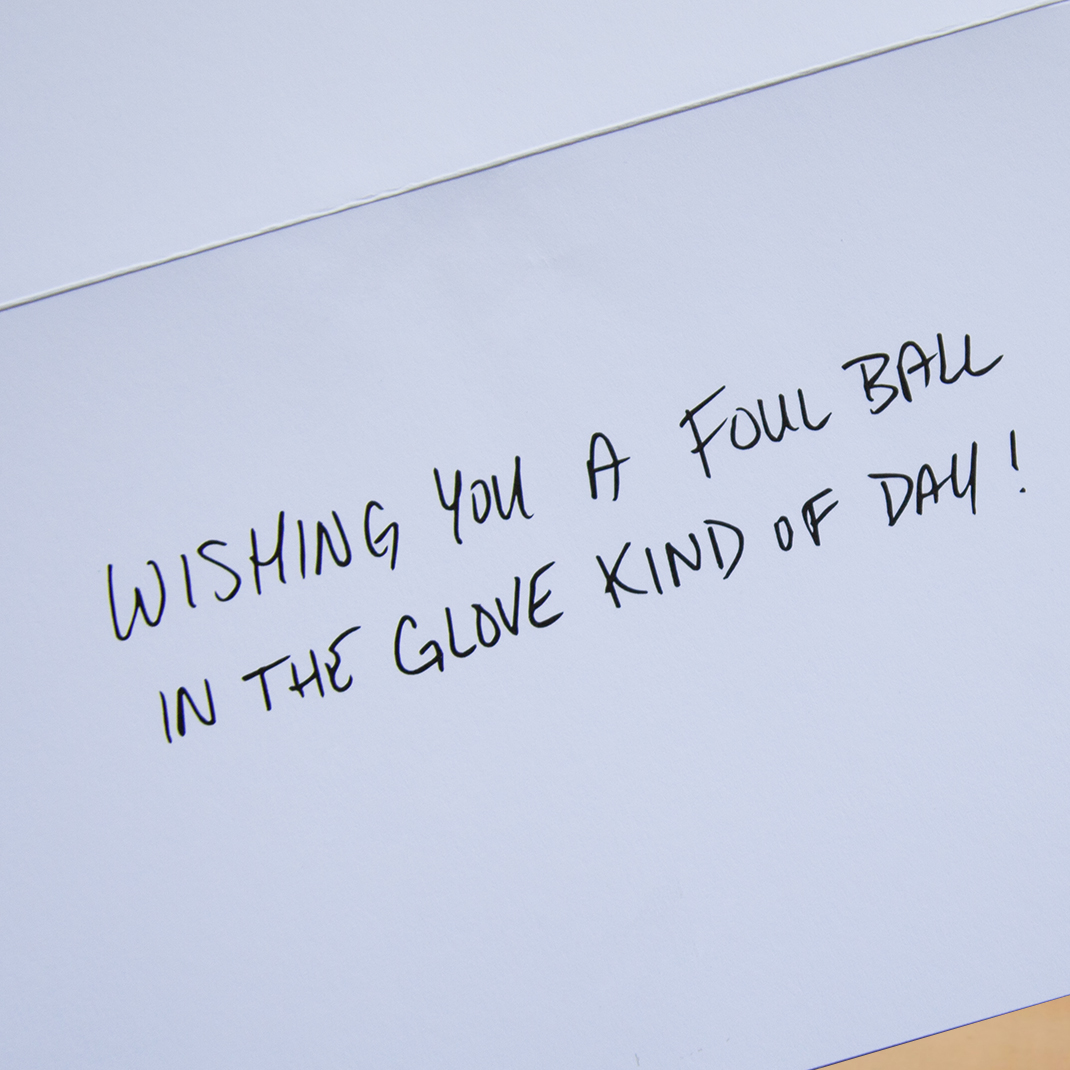 WISHING YOU A FOUL BALL
IN THE GLOVE KIND OF DAY!